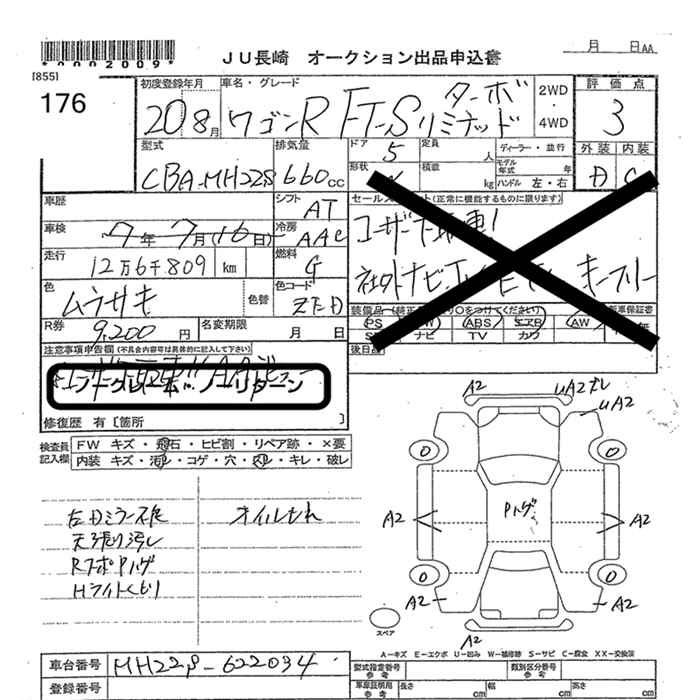 *0002009*
[855]
JU長崎 オークション出品申込書
月 日AA
176
初度登録年月
20年8月
車名・グレード
ワゴンR FT-Sリミテッド ターボ
2WD
・
4WD
評価点
3
外装 内装
D C
型式
CBA-MH22S
排気量
660cc
ドア
5
定員
人
形状
積載
kg
ディーラー・並行
モデル年式 年
ハンドル 左・右
車歴
シフト
AT
車検
7年7月(16日)
冷房
AAC
走行
12万6千809 km
燃料
G
色
ムラサキ
色替
色コード
ZTD
R券
9,200円
名変期限
月 日
セールスポイント(正常に機能するものに限ります)
ユーザー下取車!
社外ナビTV ETC キーフリー
装備品
PS PW ABS エアB AW
ナビ TV カワ
新車保証書
後日品
注意事項申告欄(不具合内容号は具体的に記入して下さい)
修復歴 有〔箇所 〕
検査員記入欄
FW キズ・飛石・ヒビ割・リペア跡・×要
内装 キズ・汚レ・コゲ・穴・スレ・キレ・破レ
左Dミラー破
天張り汚し
RスポPハゲ
Hライトくもり
オイルもれ
A2
UA2
A2
Pハゲ
A2
A2
A2
A2
A2
スペア
A-キズ E-エクボ U-凹み W-補修跡 S-サビ C-腐食 XX-交換済
車台番号
MH22S-622034
登録番号
型式指定番号
参考
類別区分番号
参考
車庫証明用
参考
長さ cm
幅 cm
高さ cm